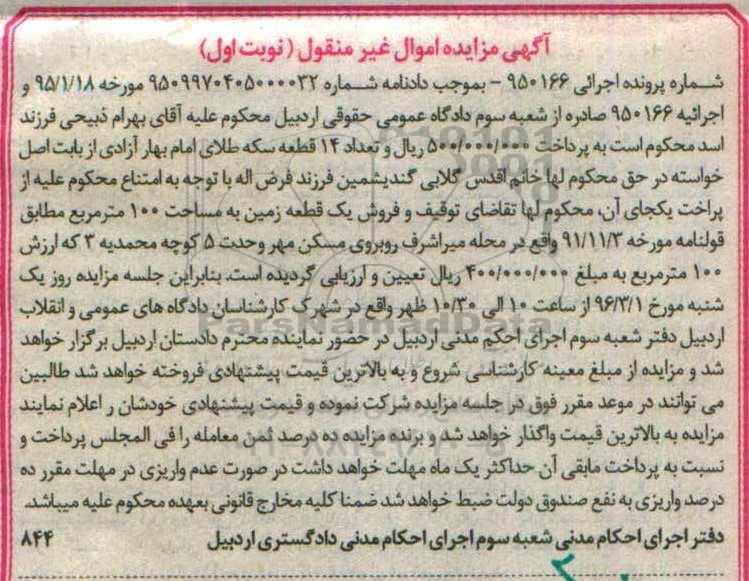 آگهی مزایده اموال غیر منقول (نوبت اول)
شماره پرونده اجرائی ۹۵۰۱۶۶ - بموجب دادنامه شماره ۹۵۰۹۹۷۰۴۰۵۰۰۰۰۳۲ مورخه ۹۵/۱/۱۸ و
اجرائیه ۹۵۰۱۶۶ صادره از شعبه سوم دادگاه عمومی حقوقی اردبیل محکوم علیه آقای بهرام ذبیحی فرزند
اسد محکوم است به پرداخت ۵۰۰/۰۰۰/۰۰۰ ریال و تعداد ۱۴ قطعه سکه طلای امام بهار آزادی از بابت اصل
خواسته در حق محکوم لها خانم اقدس گلابی گندیشمین فرزند فرض اله با توجه به امتناع محکوم علیه از
پراخت یکجای آن، محکوم لها تقاضای توقیف و فروش یک قطعه زمین به مساحت ۱۰۰ مترمربع مطابق
قولنامه مورخه ۹۱/۱۱/۳ واقع در محله میراشرف روبروی مسکن مهر وحدت ۵ کوچه محمدیه ۳ که ارزش
۱۰۰ مترمربع به مبلغ ۴۰۰/۰۰۰/۰۰۰ ریال تعیین و ارزیابی گردیده است. بنابراین جلسه مزایده روز یک
شنبه مورخ ۹۶/۳/۱ از ساعت ۱۰ الی ۱۰/۳۰ ظهر واقع در شهرک کارشناسان دادگاه های عمومی و انقلاب
ParsNamadData
اردبیل دفتر شعبه سوم اجرای احکم مدنی اردبیل در حضور نماینده محترم دادستان اردبیل برگزار خواهد
شد و مزایده از مبلغ معینه کارشناسی شروع و به بالاترین قیمت پیشنهادی فروخته خواهد شد طالبین
می توانند در موعد مقرر فوق در جلسه مزایده شرکت نموده و قیمت پیشنهادی خودشان ر اعلام نمایند
مزایده به بالاترین قیمت واگذار خواهد شد و برنده مزایده ده درصد ثمن معامله را فی المجلس پرداخت و
نسبت به پرداخت مابقی آن حداکثر یک ماه مهلت خواهد داشت در صورت عدم واریزی در مهلت مقرر ده
درصد واریزی به نفع صندوق دولت ضبط خواهد شد ضمنا کلیه مخارج قانونی بعهده محکوم علیه میباشد.
دفتر اجرای احکام مدنی شعبه سوم اجرای احکام مدنی دادگستری اردبیل ۸۴۴